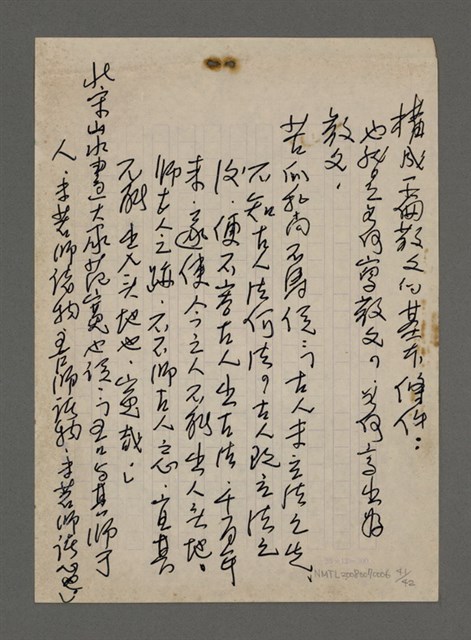 構成一篇散文的基本條件:
也就是如何寫散文,如何寫出好
散文,
苦瓜和尚石濤說:「古人未立法之先、
不知古人法何法,古人既立法之
後,便不容古人出古法,千百年
來,遂使今之人不能出人頭地。
師古人之跡,不師古人之心,宜其
不能出人頭地也,冤哉!」
北宋山水畫大家范寬也說:「吾與其師于
人,未若師諸物,吾與師諸物,未若師諸心。」
NMTL20080090006 41/42